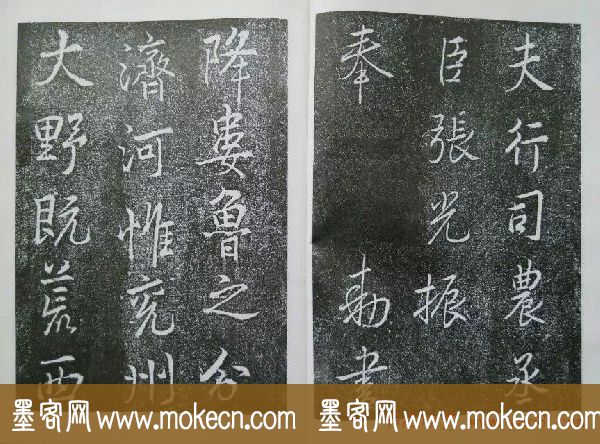 夫行司農丞
臣張光振
奉 勑書
降婁魯之分
濟河惟兗州
大野既荒西
墨客网 www.mokecn.com 墨客网 www.mokecn.com